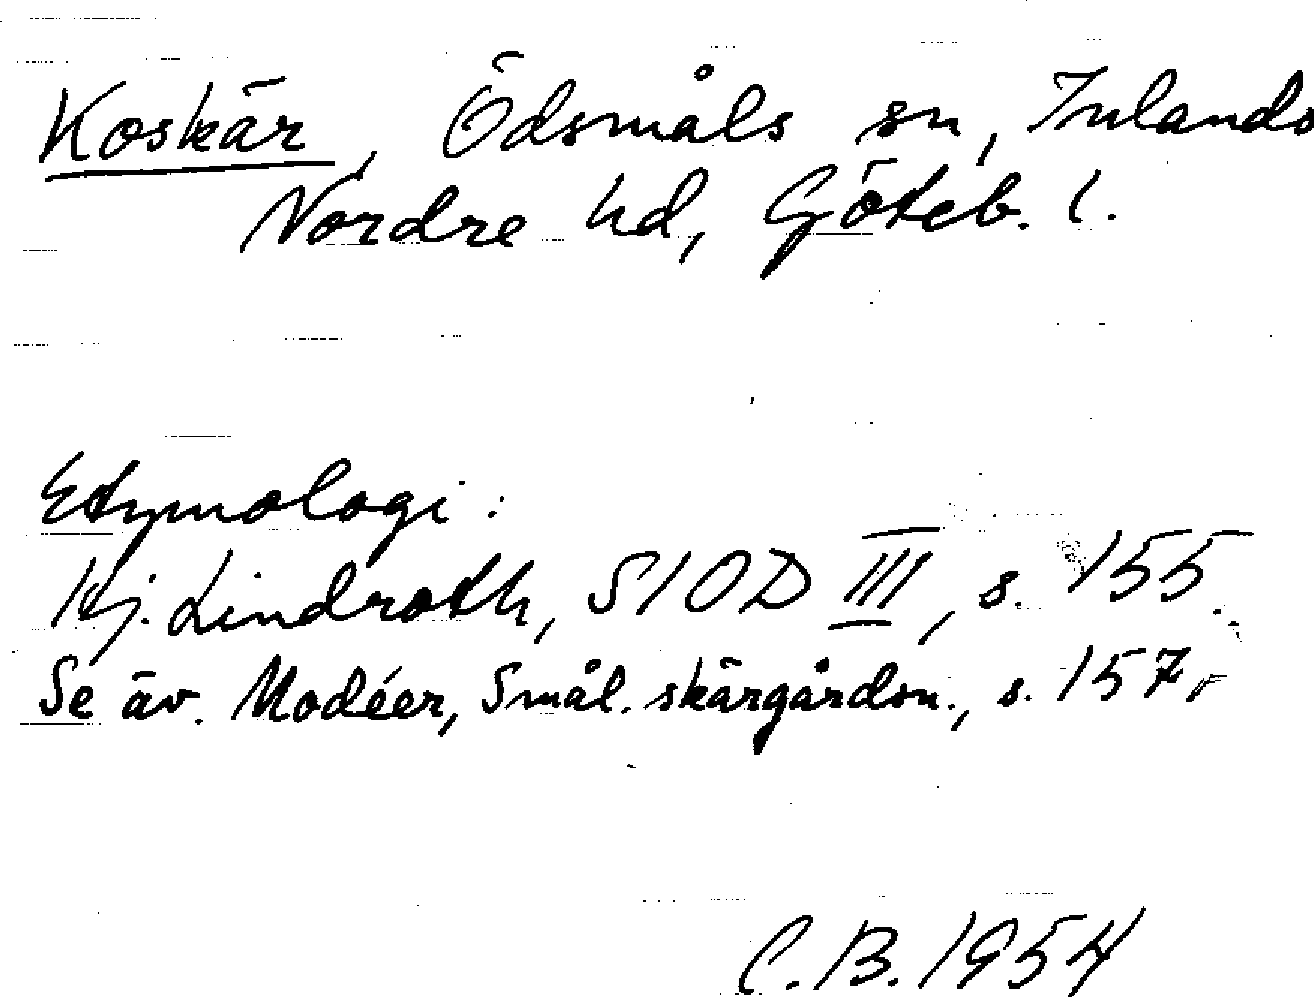 Koskär, Ödsmåls sn, Inlands
Nordre hd, Göteb. l.
Etymologi:
Hj. Lindroth, SIOD III, s. 155.
Se äv. Modéer, Smål. skärgårdsn., s. 157.
C.B. 1954